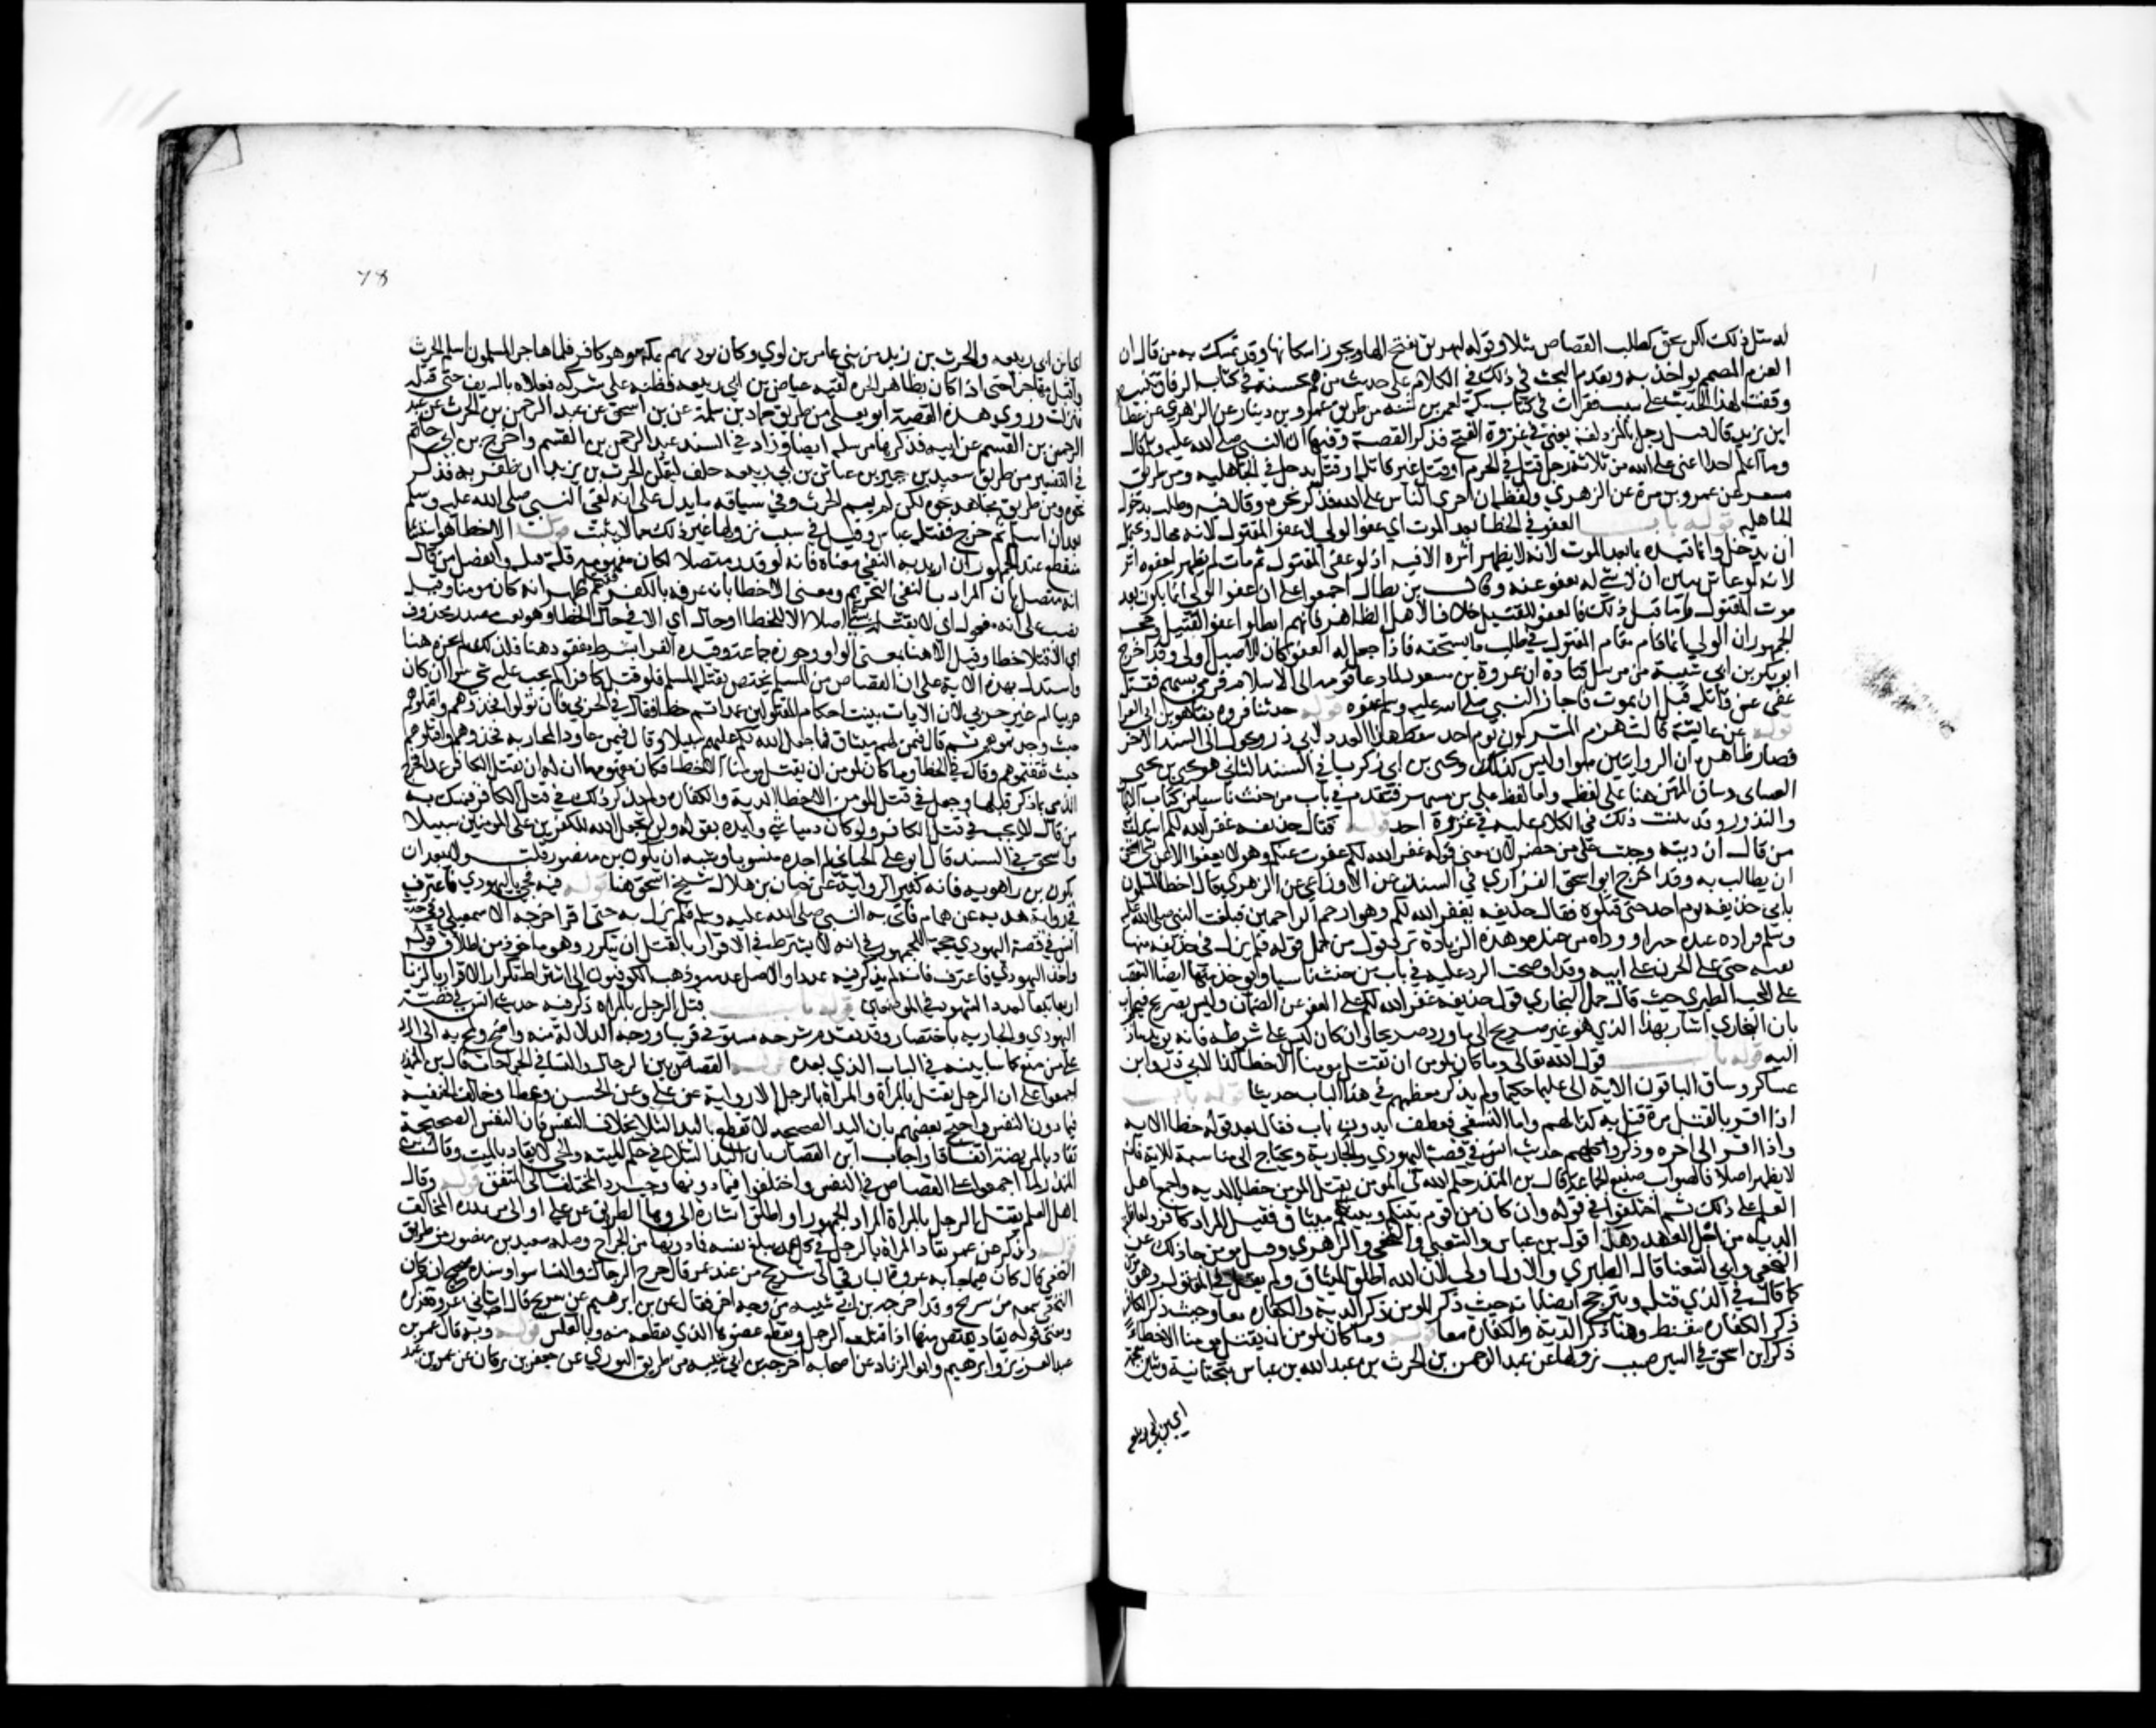 له مثل ذلك لكن بحق كطلب القصاص مثلا وقوله ليهريق بفتح الهاء ويجوز اسكانها وقد تمسك به من قال ان
العزم المصمم يؤاخذ به وتقدم البحث في ذلك في الكلام على حديث من هم بحسنة في كتاب الرقاق تنبيه
وقفت لهذا الحديث على سبب فقرات في كتاب مكة لعمر بن شبه من طريق عمرو بن دينار عن الزهري عن عطا
ابن يزيد قال قتل رجل بالمزدلفة يعني في غزوة الفتح فذكر القصة وفيها ان النبي صلى الله عليه وسلم قال
وما اعلم احدا اعتى على الله من ثلاثة رجل قتل في الحرم او قتل غير قاتله او قتل بدحل في الجاهلية ومن طريق
مسعر عن عمرو بن مرة عن الزهري ولفظه ان اجرى الناس على الله فذكر نحوه وقال فيه وطلب بدحول
الجاهليه قوله باب العفو في الخطا بعد الموت اي عفو الولي لا عفو المقتول لانه محال ويحتمل
ان يدخل وانما قيده بما بعد الموت لانه لا يظهر اثره الا فيه اذ لو عفى المقتول ثم مات لم يظهر لعفوه اثر
لانه لو عاش تبين ان لا شي له يعفو عنه وقال بن بطال اجمعوا على ان عفو الولي انما يكون بعد
موت المقتول واما قبل ذلك فالعفو للقتيل خلافا لاهل الظاهر فانهم ابطلوا عفو القتيل وحجة
الجمهور ان الولي لما قام مقام المقتول في طلب ما يستحقه فاذا جعل له العفو كان للاصيل اولى وقد اخرج
ابو بكر بن ابي شيبة من مرسل قتادة ان عروة بن مسعود لما دعا قومه الى الاسلام فرمي بسهم فقتل
عفى عن قاتله قبل ان يموت فاجاز النبي صلى الله عليه وسلم عفوه قوله حدثنا فروة بفا هو بن ابي المغرا
قوله عن عائشة قالت هزم المشركون يوم احد سقط هذا القدر لابي ذر وتحول الى السند الاخر
فصار ظاهره ان الروايتين سواء وليس كذلك ويحيى بن ابي زكريا في السند الثاني هو يحيى بن يحيى
الغساني وساق المتن هنا على لفظه واما لفظ علي بن مسهر فتقدم في باب من حنث ناسيا من كتاب الايمان
والنذور وقد بينت ذلك في الكلام عليه في غزوة احد قوله فقال حذيفة غفر الله لكم استدل به
من قال ان ديته وجبت على من حضر لان معنى قوله غفر الله لكم عفوت عنكم وهو لا يعفوا الا عن شي استحق
ان يطالب به وقد اخرج ابو اسحق الفزاري في السنن عن الاوزاعي عن الزهري قال اخطا المسلمون
بابي حذيفة يوم احد حتى قتلوه فقال حذيفة يغفر الله لكم وهو ارحم الراحمين فبلغت النبي صلى الله عليه
وسلم فزاده عنده خيرا ووداه من عنده وهذه الزيادة ترد قول من حمل قوله فلم يزل في حذيفة منها
بقية حتى على الحزن على ابيه وقد اوضحت الرد عليه في باب من حنث ناسيا ويوخذ منها ايضا التعقب
على المحب الطبري حيث قال حمل البخاري قول حذيفة غفر الله لكم على العفو عن الضمان وليس بصريح فيجاب
بان البخاري اشار بهذا الذي هو غير صريح الى ما ورد صريحا وان كان ليس على شرطه فانه يؤيد ما ذهب
اليه قوله باب قول الله تعالى وما كان لمومن ان يقتل مومنا الا خطا كذا لابي ذر وابن
عساكر وساق الباقون الاية الى عليما حكيما ولم يذكر معظمهم في هذا الباب حديثا قوله باب
اذا اقر بالقتل مرة قتل به كذا لهم واما النسفي فعطف بدون باب فقال بعد قوله خطا الاية
واذا اقر الى اخره وذكروا كلهم حديث انس في قصة اليهودي والجارية ويحتاج الى مناسبة للاية فانه
لا يظهر اصلا فالصواب صنيع الجماعة قال بن المنذر حكم الله في المومن يقتل المومن خطا بالدية واجمع اهل
العلم على ذلك ثم اختلفوا في قوله وان كان من قوم بينكم وبينهم ميثاق فقيل المراد كافر ولعاقلته
الدية من اجل العهد وهذا قول بن عباس والشعبي والنخعي والزهري وقيل مومن جا ذلك عن
النخعي وابي الشعثا قال الطبري والاول اولى لان الله اطلق الميثاق ولم يقل في المقتول وهو مومن
كما قال في الذي قتله ويترجح ايضا بانه حيث ذكر المومن ذكر الدية والكفارة معا وحيث ذكر الكافر
ذكر الكفارة فقط وهنا ذكر الدية والكفارة معا قوله وما كان لمومن ان يقتل مومنا الا خطاء
ذكر ابن اسحق في السير سبب نزولها عن عبد الرحمن بن الحرث بن عبد الله بن عياش بتحتانية وشين معجمة
اي بن ابي ربيعه
والحرث بن زيد من بني عامر بن لوي وكان يوذيهم بمكة وهو كافر فلما هاجر المسلمون اسلم الحرث
واقبل مهاجرا حتى اذا كان بظاهر الحرة لقيه عياش بن ابي ربيعة فظنه على شركه فعلاه بالسيف حتى قتله
فنزلت وروى هذه القصة ابو يعلى من طريق حماد بن سلمة عن بن اسحق عن عبد الرحمن بن الحرث عن عبد
الرحمن بن القسم عن ابيه فذكرها مرسله ايضا وزاد في السند عبد الرحمن بن القسم واخرج بن ابي حاتم
في التفسير من طريق سعيد بن جبير بن عياش بن ابي ربيعة حلف ليقتلن الحرث بن يزيد ان ظفر به فذكر
نحوه ومن طريق مجاهد نحوه لكن لم يسم الحرث وفي سياقه ما يدل على انه لقي النبي صلى الله عليه وسلم
بعد ان اسلم ثم خرج فقتله عياش وقيل في سبب نزولها غير ذلك مما لا يثبت قوله الا خطا هو استثنا
منقطع عند الجمهور ان اريد بالنفي معناه فانه لو قدر متصلا لكان مفهومه فله قتله وانفصل من قال
انه متصل بان المراد بالنفي التحريم ومعنى الا خطا بان عرفه بالكفر فقتله ثم ظهر انه كان مومنا وقيل
نصب على انه مفعول اي لا يقتله لشي اصلا الا للخطا او حال اي الا في حال الخطا او هو نعت مصدر محذوف
اي الا قتلا خطا وقيل الا هنا بمعنى الواو وجوزه جماعة وقيده الفرا بشرط مفقود هنا فلذلك لم يجزه هنا
واستدل بهذه الاية على ان القصاص من المسلم يختص بقتله المسلم فلو قتل كافرا لم يجب عليه شي سوا كان
حربيا ام غير حربي لان الايات بينت احكام المقتولين عمدا ثم خطا فقال في الحربي فان تولوا فخذوهم واقتلوهم
حيث وجدتموهم ثم قال فيمن لهم ميثاق فما جعل الله لكم عليهم سبيلا وقال فيمن عاود المحاربة فخذوهم واقتلوهم
حيث ثقفتموهم وقال في الخطا وما كان لمومن ان يقتل مومنا الا خطا فكان مفهومها ان له ان يقتل الكافر عمدا فخرج
الذمي بما ذكر قبلها وجعل في قتل المومن الا خطا الدية والكفارة ولم يذكر ذلك في قتل الكافر فتمسك به
من قال لا يجب في قتل الكافر ولو كان ذميا شي وايده بقوله ولن يجعل الله للكفرين على المومنين سبيلا
واسحق في السند قال ابو علي الجياني لم اجده منسوبا ويشبه ان يكون بن منصور قلت ولا يبعد ان
يكون بن راهويه فانه كثير الرواية عن حبان بن هلال شيخ اسحق هنا قوله فيه فجي باليهودي فاعترف
في رواية هدبة عن همام فاتى به النبي صلى الله عليه وسلم فلم يزل به حتى اقر اخرجه الاسمعيلي وفي حديث
انس في قصة اليهودي حجة للجمهور في انه لا يشترط في الاقرار بالقتل ان يتكرر وهو ماخوذ من اطلاق قوله
واخذ اليهودي فاعترف فانه لم يذكر فيه عددا والاصل عدمه وذهب الكوفيون الى اشتراط تكرار الاقرار بالزنا
اربعا تبعا لعدد الشهود في الموضعين قوله باب قتل الرجل بالمراة ذكر فيه حديث انس في قصة
اليهودي والجارية باختصار وقد تقدم شرحه مستوفى قريبا ووجه الدلالة منه واضح ولمح به الى الرد
على من منع كما سابينه في الباب الذي بعده قوله باب القصاص بين الرجال والنسا في الجراحات قال بن المنذر
اجمعوا على ان الرجل يقتل بالمراة والمراة بالرجل الا رواية عن علي وعن الحسن وعطا وخالف الحنفية
فيما دون النفس واحتج بعضهم بان اليد الصحيحة لا تقطع باليد الشلا بخلاف النفس فان النفس الصحيحة
تقاد بالمريضة اتفاقا واجاب ابن القصار بان اليد الشلا في حكم الميتة والحي لا يقاد بالميت وقال بن
المنذر لما اجمعوا على القصاص في النفس واختلفوا فيما دونها وجب رد المختلف الى المتفق قوله وقال
اهل العلم يقتل الرجل بالمراة المراد الجمهور او اطلق اشارة الى وهاء الطريق عن علي او الى من ندرة المخالف
قوله ويذكر عن عمر تقاد المراة بالرجل في كل عمد يبلغ نفسه فما دونها من الجراح وصله سعيد بن منصور من طريق
النخعي قال كان فيما جا به عروة البارقي الى شريح من عند عمر قال جرح الرجال والنسا سوا وسنده صحيح ان كان
النخعي سمعه من شريح وقد اخرجه بن ابي شيبه من وجه اخر فقال عن بن ابرهيم عن شريح قال اتاني عروة فذكره
ومعنى قوله تقاد يقتص منها اذا قتلت الرجل ويقطع عضوها الذي تقطعه منه وبالعكس قوله وبه قال عمر بن
عبد العزيز وابرهيم وابو الزناد عن اصحابه اخرجه بن ابي شيبه من طريق الثوري عن جعفر بن برقان عن عمر بن عبد
78